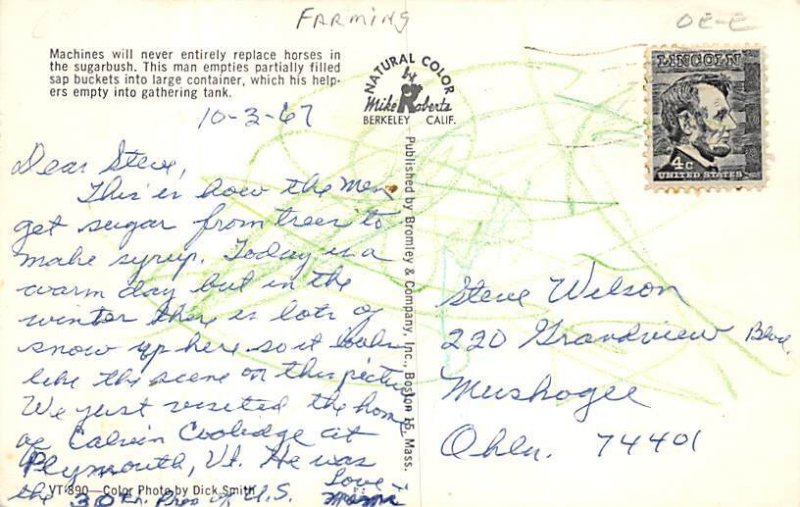 FARMING
OE-E
Machines will never entirely replace horses in
the sugarbush. This man empties partially filled
sap buckets into large container, which his help-
ers empty into gathering tank.
NATURAL COLOR
by
Mike Roberts
BERKELEY CALIF.
LINCOLN
4c
UNITED STATES
10-3-67
Dear Steve,
This is how the men
get sugar from trees to
make syrup. Today is a
warm day but in the
winter there is lots of
snow up here so it looks
like the scene on this picture
We just visited the home
of Calvin Coolidge at
Plymouth, Vt. He was
the 30th Pres of U.S.
Love
VT-890—Color Photo by Dick Smith
Published by Bromley & Company, Inc., Boston 16, Mass.
Steve Wilson
220 Grandview Blvd.
Muskogee
Okla. 74401